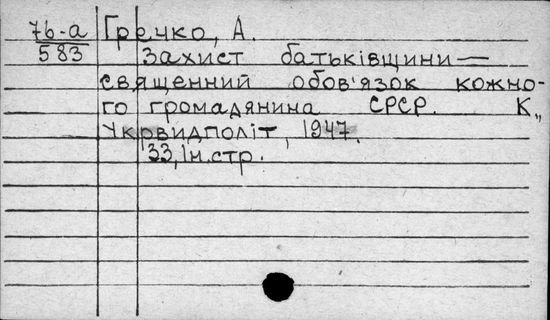 76-а Гречко, А.
583 Захист батьківщини —
священний обов'язок кожно-
го громадянина СРСР. К.,
Укрвидполіт, 1947.
33, Ін. стр.